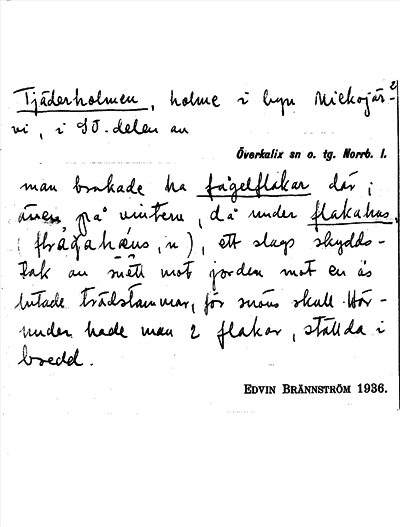 Tjäderholmen, holme i byn Mickojär-
vi, i SO. delen av
Överkalix sn o. tg. Norrb. l.
man brukade ha fågelflakar där,
även på vintern, då under flakahus,
(        , n), ett slags skydds-
tak av        mot jorden mot en ås
lutade trädstammar, för snöns skull. Här-
under hade man 2 flakar, ställda i
bredd.
EDVIN BRÄNNSTRÖM 1936.